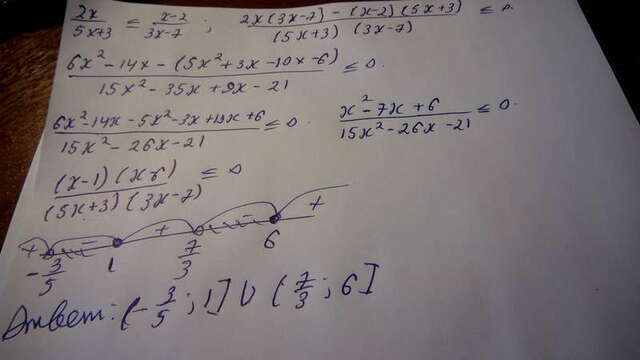 2x/5x+3 ≤ x-2/3x-7 ; 2x(3x-7) - (x-2)(5x+3)/(5x+3) (3x-7) ≤ 0.
6x²-14x-(5x²+3x-10x-6)/15x²-35x+9x-21 ≤ 0.
6x²-14x-5x²-3x+10x+6/15x²-26x-21 ≤ 0. x²-7x+6/15x²-26x-21 ≤ 0.
(x-1)(x-6)/(5x+3)(3x-7) ≤ 0
+ - + - +
-3/5 1 7/3 6
Ответ: (-3/5; 1] U (7/3; 6]